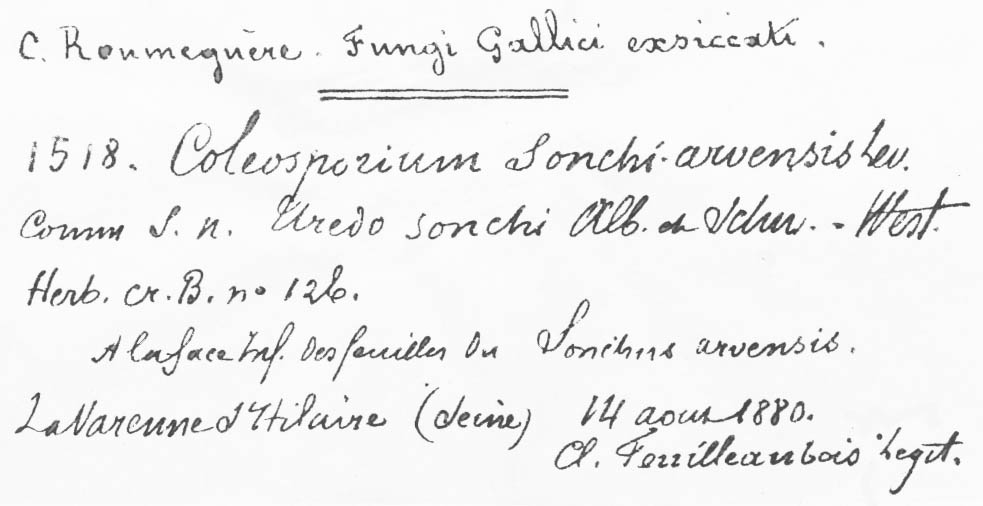 C. Roumeguère. Fungi Gallici exsiccati.
1518. Coleosporium Sonchi-arvensis Lev.
Comm S. n. Uredo sonchi Alb. et Schw. - West.
Herb. cr. B. no 126.
A la face Inf. Des feuilles Du Sonchus arvensis.
La Varenne St Hilaire (Seine) 14 aout 1880.
Cl. Feuilleaubois Legit.